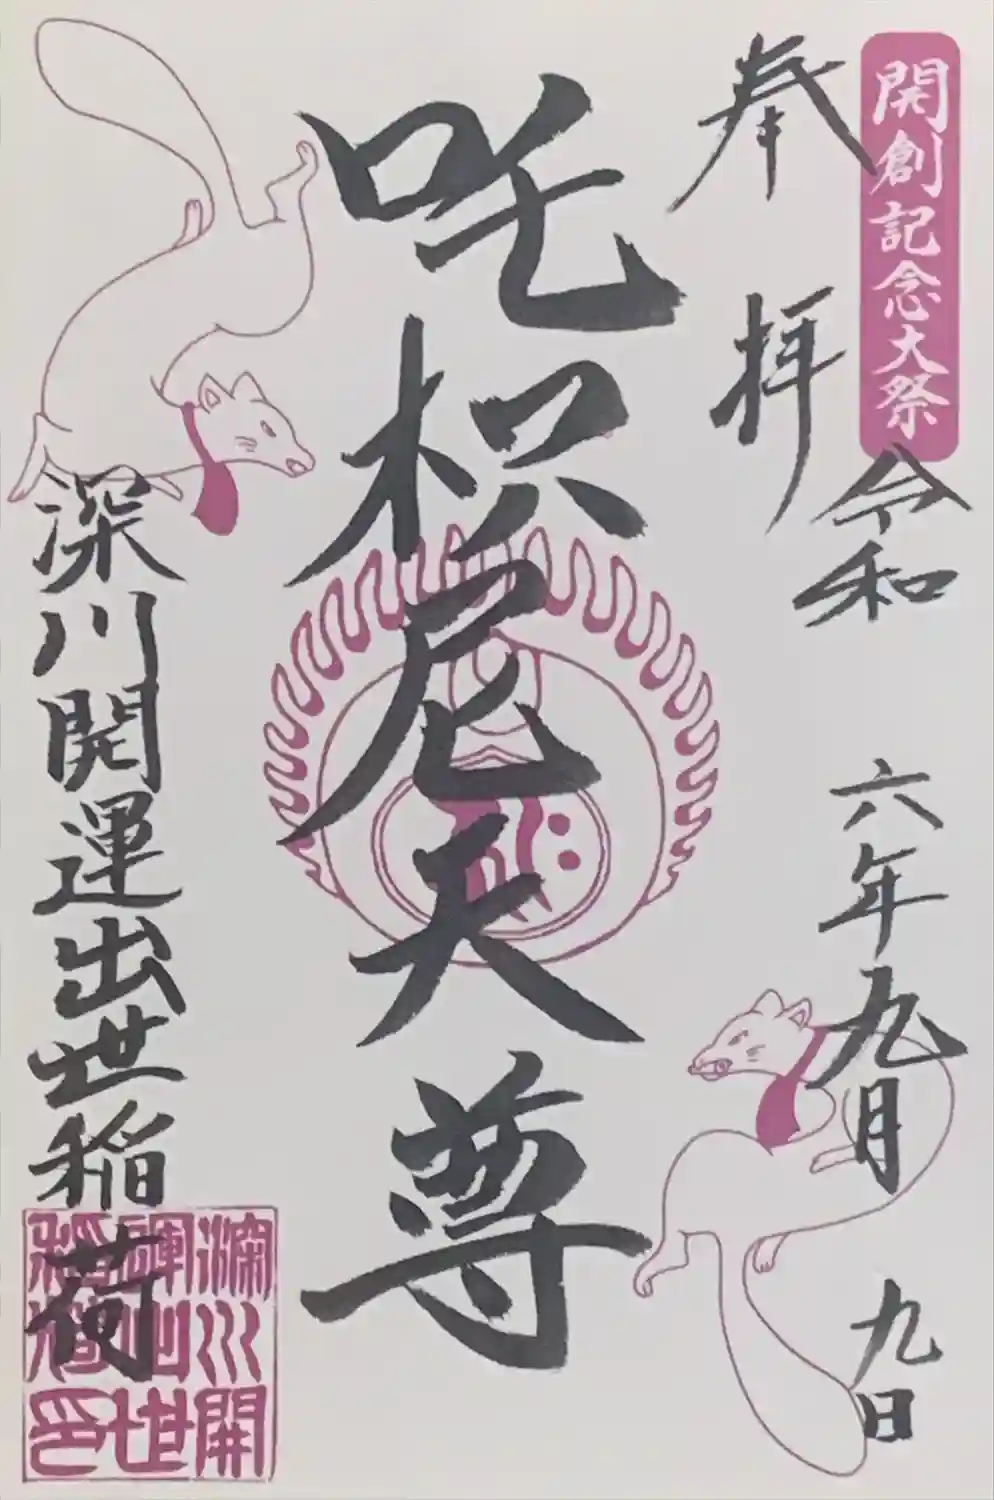 開創記念大祭
令和六年九月九日
奉拝
吒枳尼天尊
深川開運出世稲荷
深川開
運出世
稲荷印